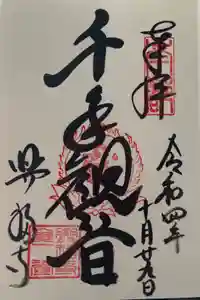 奉拝
令和四年
十月廿九日
千手觀音
興福寺